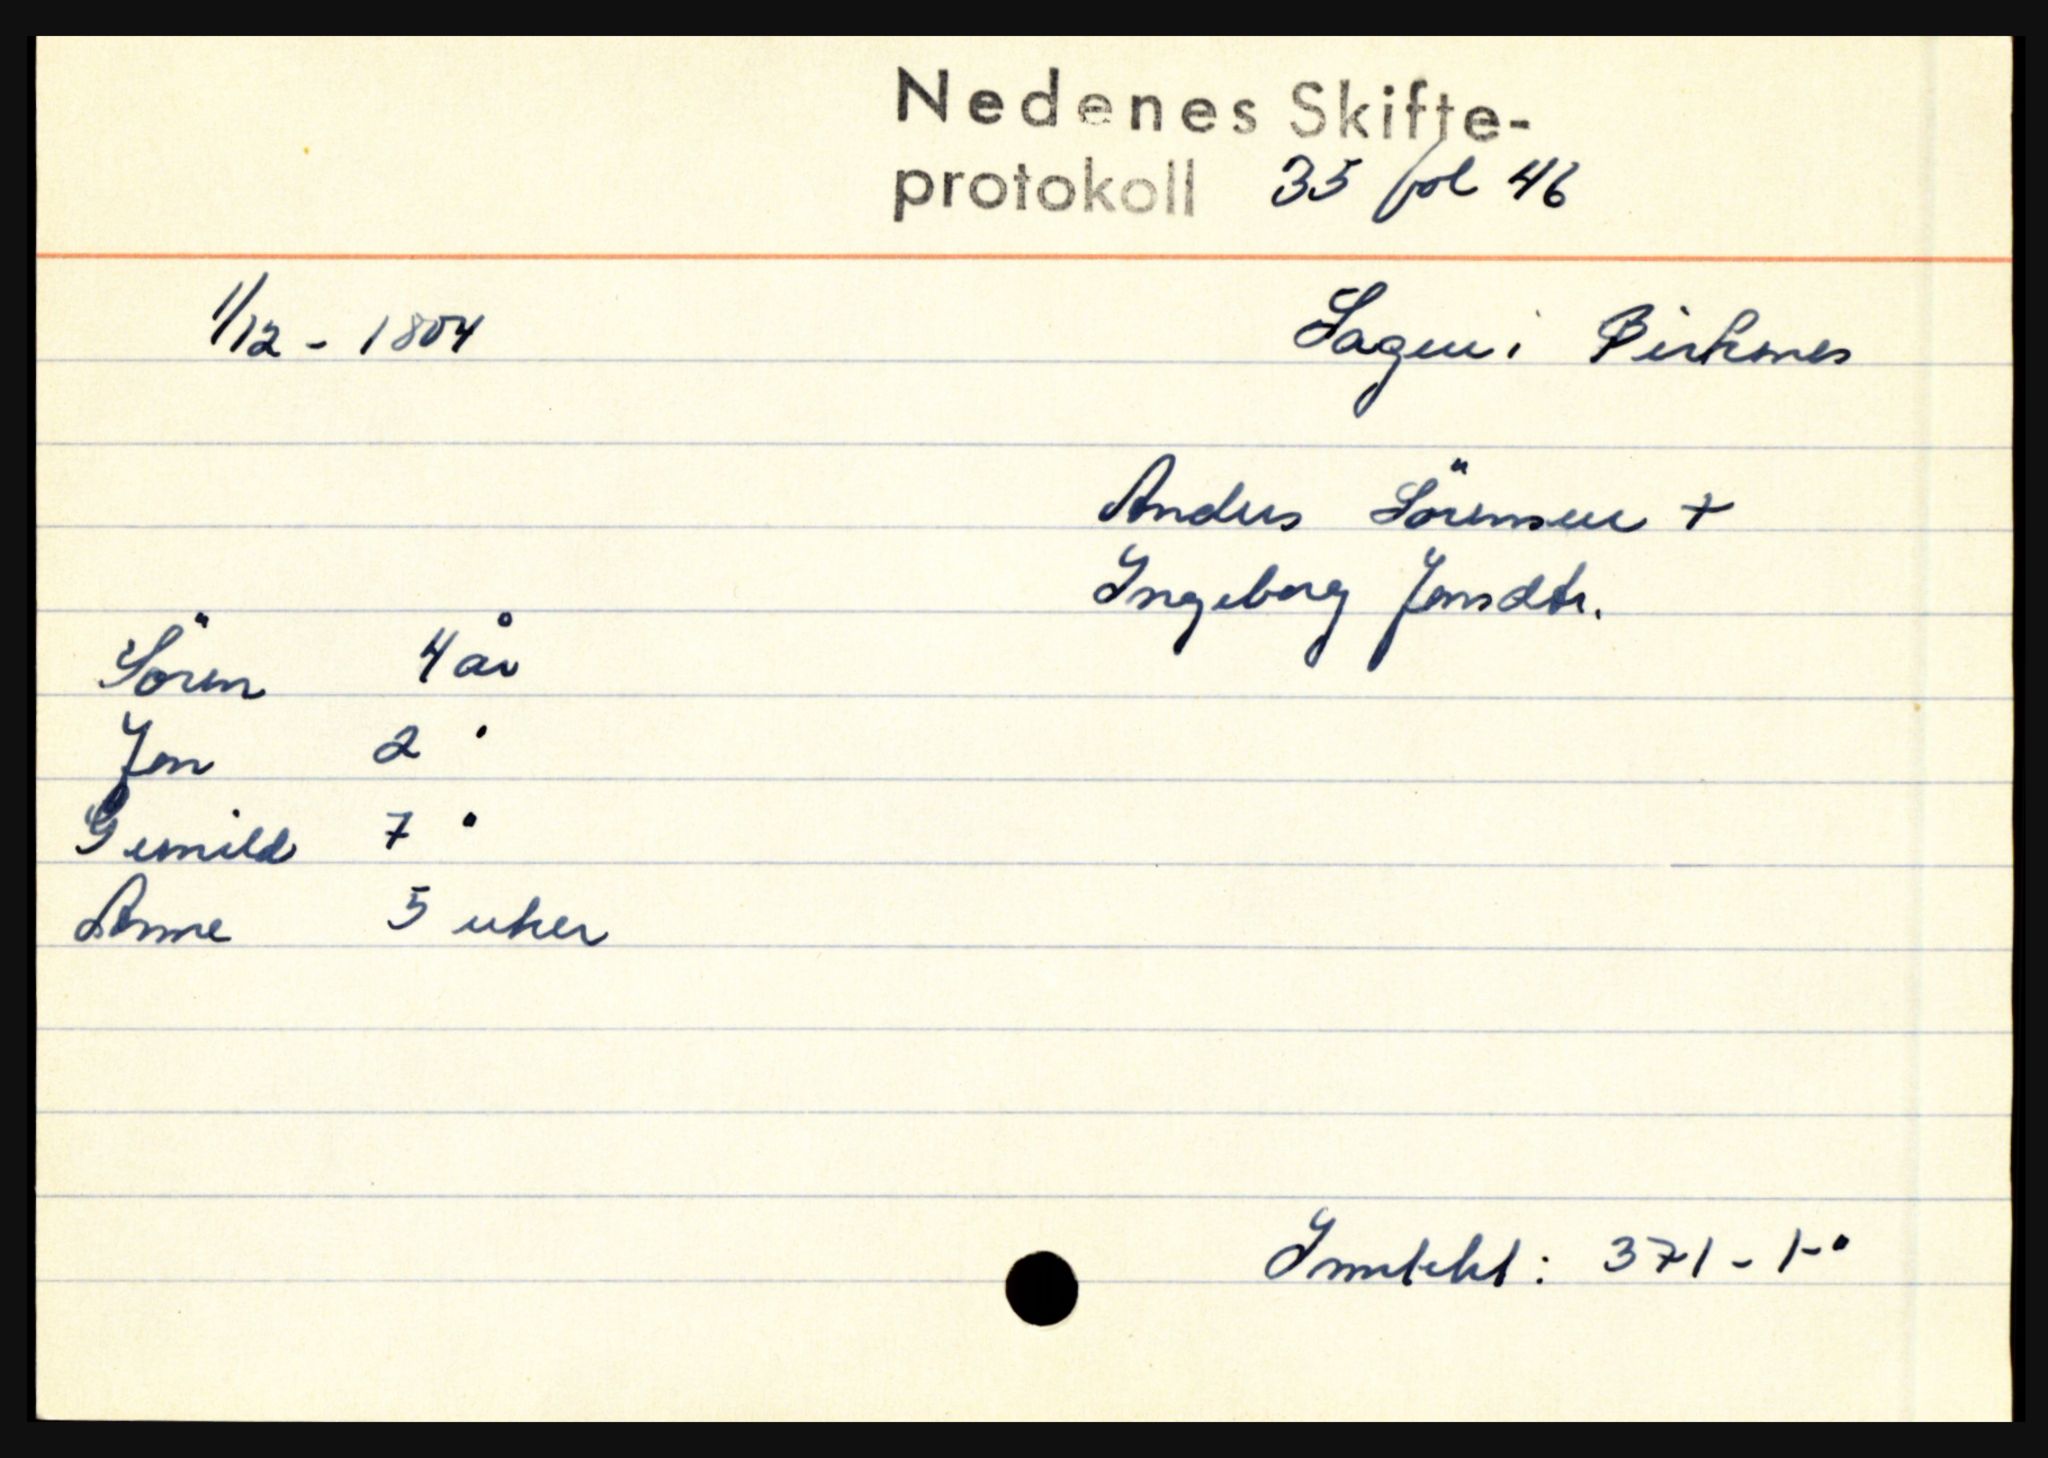 Nedenes Skifte-
protokoll 35 fol 46
1/12 - 1804 Sagen i Birkenes
Anders Sörensen +
Ingeborg Jonsdtr.
Sören 4 år
Jon 2 "
Gunild 7 "
Anne 5 uker
Inntekt: 371 - 1 - "